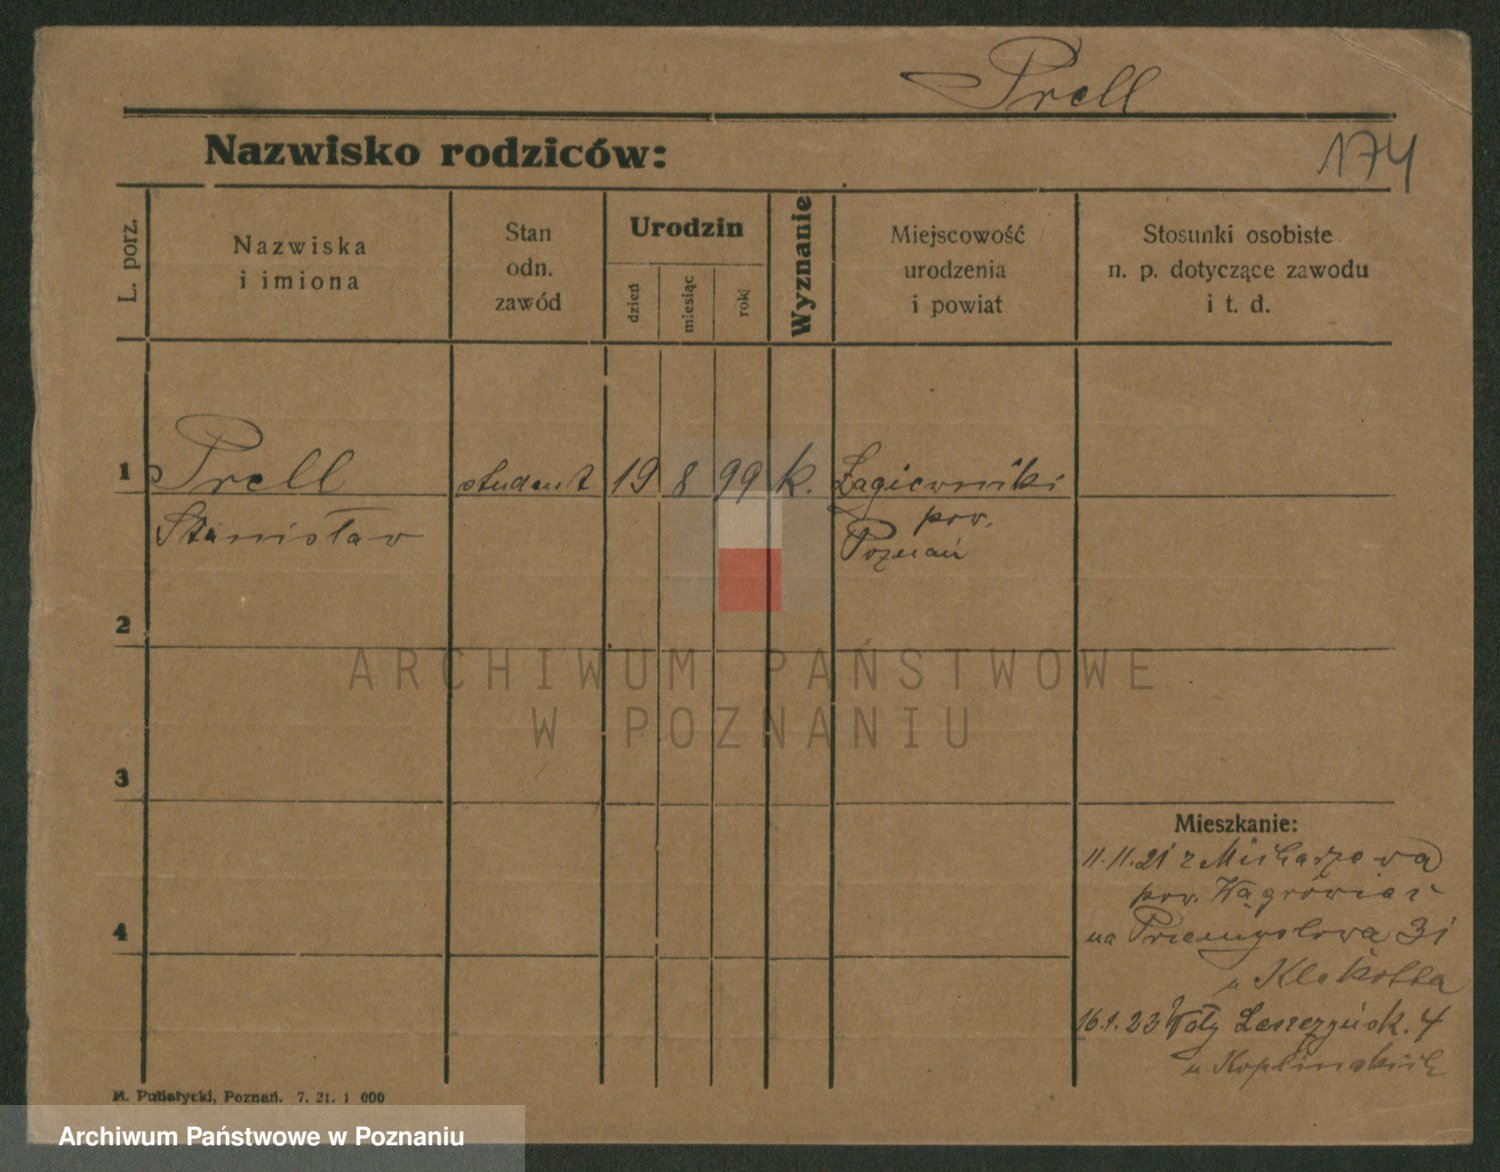 Prell
Nazwisko rodziców:
174
L. porz.
Nazwiska
i imiona
Stan
odn.
zawód
Urodzin
dzień
miesiąc
rok
Wyznanie
Miejscowość
urodzenia
i powiat
Stosunki osobiste
n. p. dotyczące zawodu
i t. d.
1 Prell student 19 8 99 k. Łagiewniki
Stanisław pow.
Poznań
2
ARCHIWUM PAŃSTWOWE
W POZNANIU
3
Mieszkanie:
11.11.21 z
pow. Wągrówiec
4
na Przemysłowa 31
u
16.1.23 Wały Leszczyńsk. 4
u Koplinskich
M. Putiatycki, Poznań. 7. 21. 1 000
Archiwum Państwowe w Poznaniu